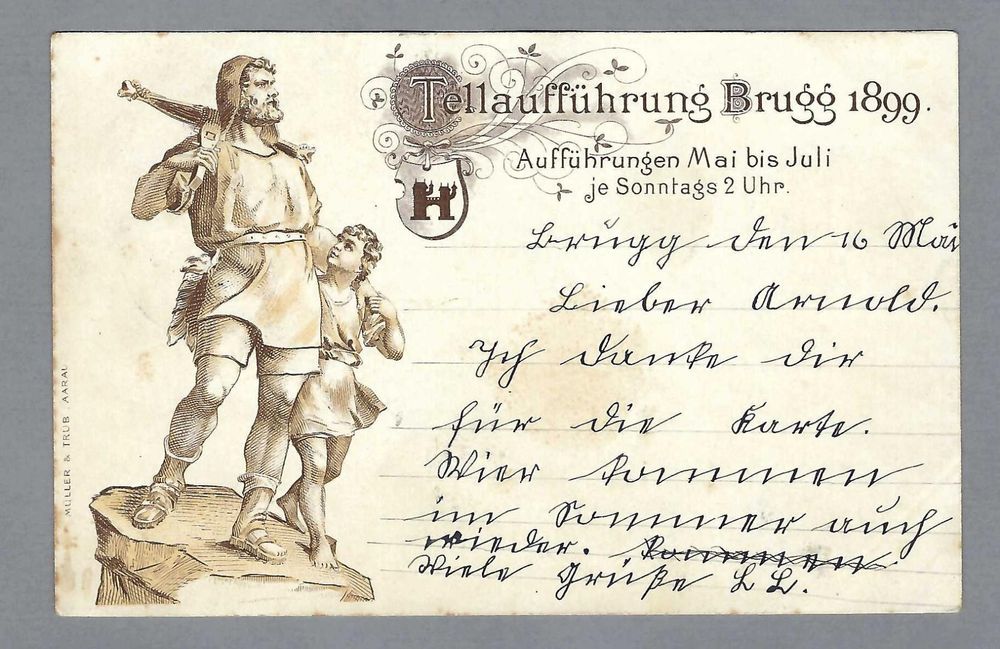 Tellaufführung Brugg 1899.
Aufführungen Mai bis Juli
je Sonntags 2 Uhr.
Brugg den 16 Mai
Lieber Arnold.
Ich danke dir
für die Karte.
Wier kommen
im Sommer auch
wieder. kommen.
Viele Grüße L L.
MÜLLER & TRÜB AARAU